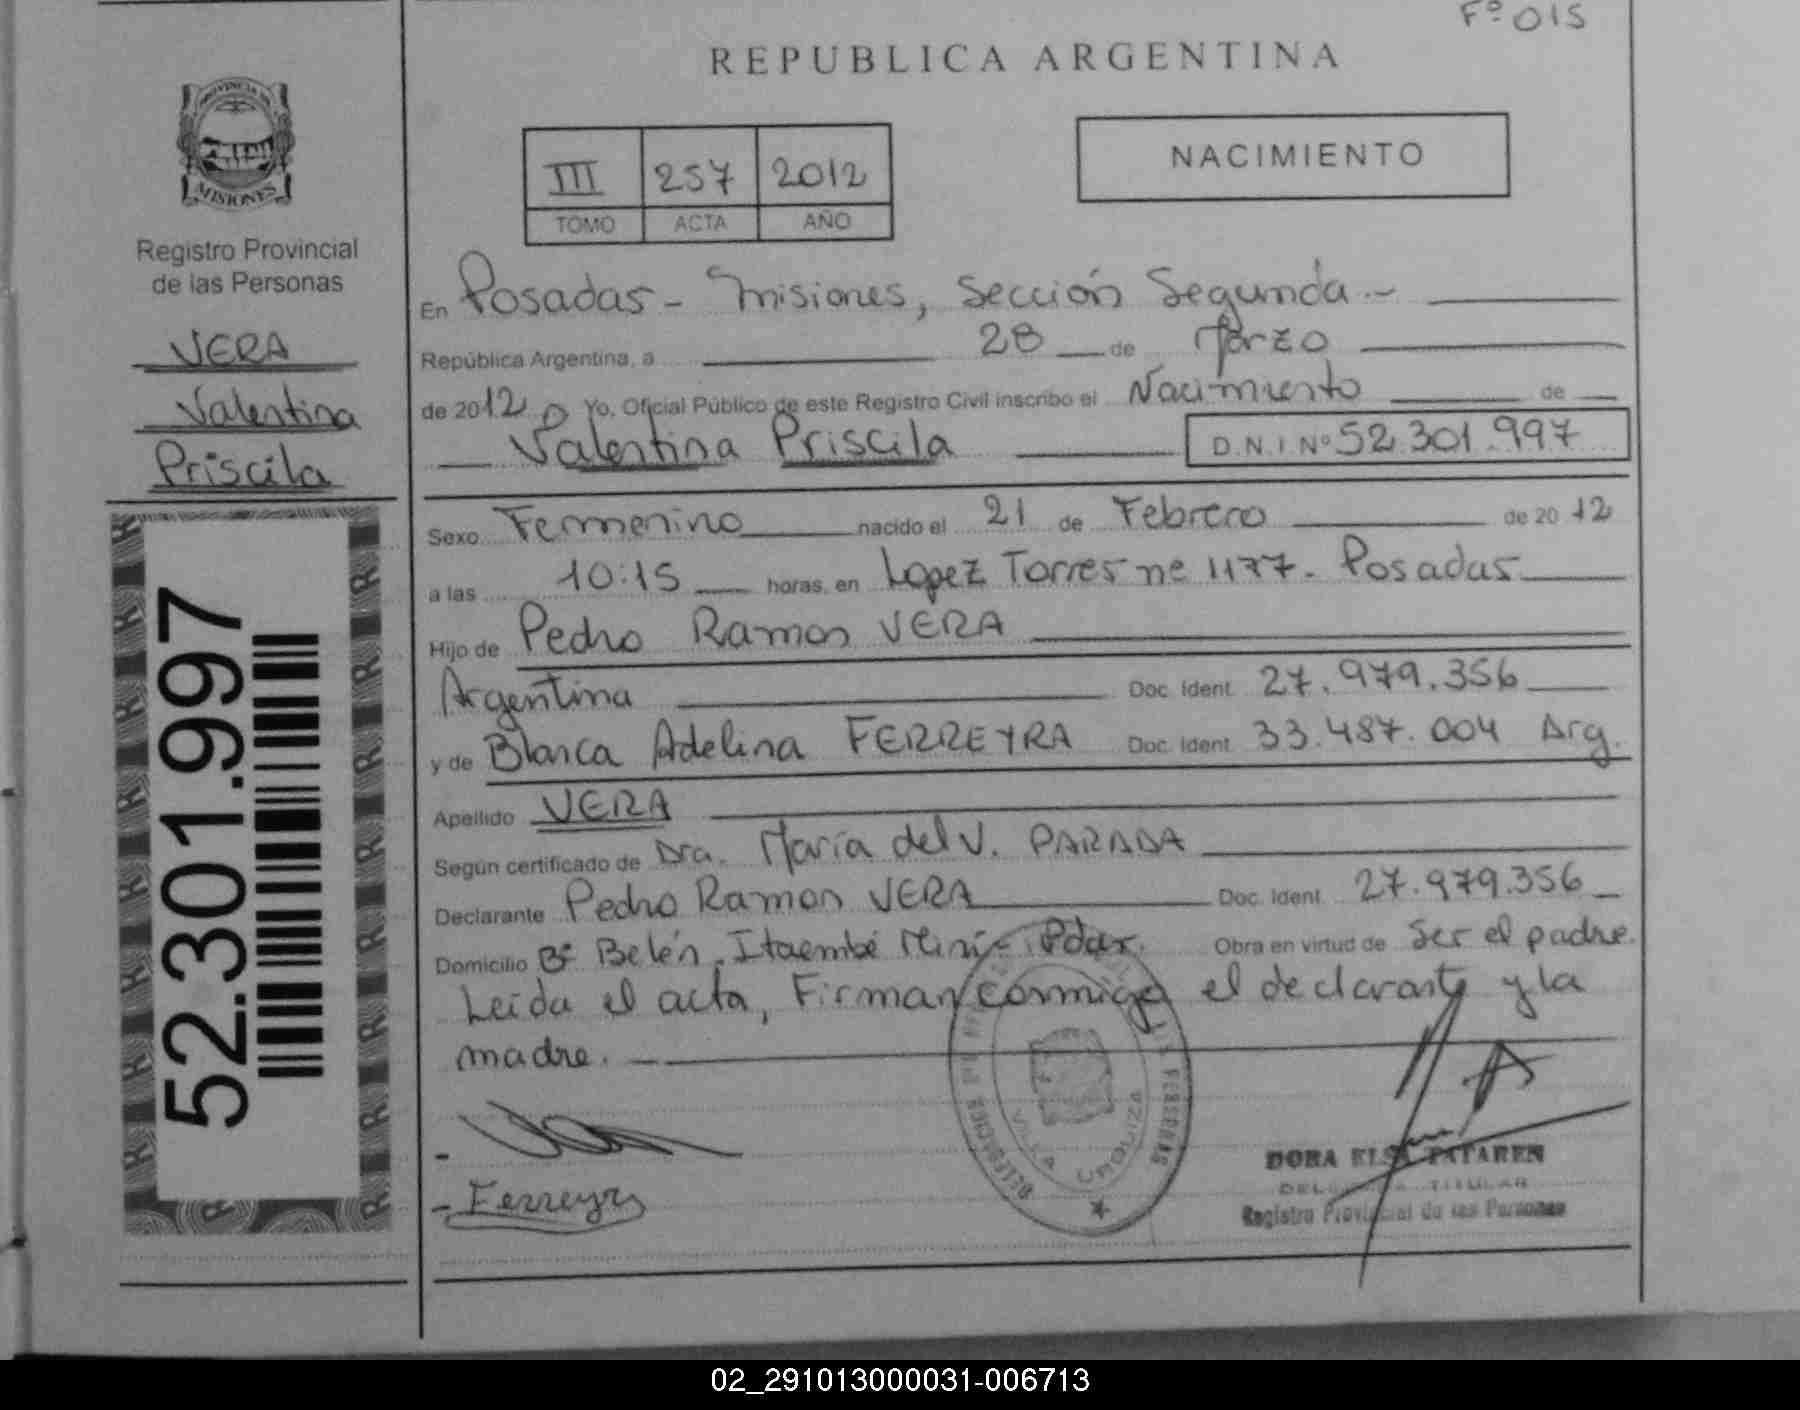 Fº 015
REPUBLICA ARGENTINA
PROVINCIA DE
MISIONES
Registro Provincial
de las Personas
VERA
Valentina
Priscila
52.301.997
III 257 2012
TOMO ACTA AÑO
NACIMIENTO
En Posadas - Misiones, Sección Segunda.-
República Argentina, a 28 de Marzo
de 2012 Yo, Oficial Público de este Registro Civil inscribo el Nacimiento de
Valentina Priscila D.N.I. Nº 52.301.997
Sexo Femenino nacido el 21 de Febrero de 2012
a las 10:15 horas, en Lopez Torres ne 1177. Posadas
Hijo de Pedro Ramon VERA
Argentina Doc. Ident. 27.979.356
y de Blanca Adelina FERREYRA Doc. Ident. 33.487.004 Arg.
Apellido VERA
Según certificado de Dra. María del V. PARADA
Declarante Pedro Ramon VERA Doc. Ident. 27.979.356
Domicilio Bº Belén. Itaembé Miní - Pdas. Obra en virtud de Ser el padre.
Leída el acta, Firman conmigo el declarante y la
madre.
- Ferreyra
VILLA URQUIZA
DORA ELSA
TITULAR
Registro Provincial de las Personas
02_291013000031-006713